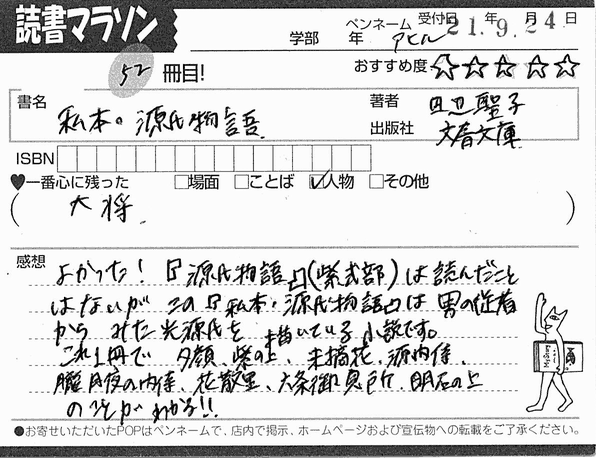 読書マラソン
学部 年 ペンネーム アヒル 受付日 21.年9.月24.日
52 冊目!
おすすめ度 ☆☆☆☆☆
書名 私本・源氏物語
著者 田辺聖子
出版社 文春文庫
ISBN
♥一番心に残った □場面 □ことば ☑人物 □その他
( 大将 )
感想
よかった!『源氏物語』(紫式部)は読んだこと
はないが この『私本・源氏物語』は 男の従者
から みた光源氏を 描いている小説です。
これ1冊で 夕顔、紫の上、末摘花、源内侍、
朧月夜の内侍、花散里、六条御息所、明石の上
のことが わかる!!
●お寄せいただいたPOPはペンネームで、店内で掲示、ホームページおよび宣伝物への転載をご了承ください。